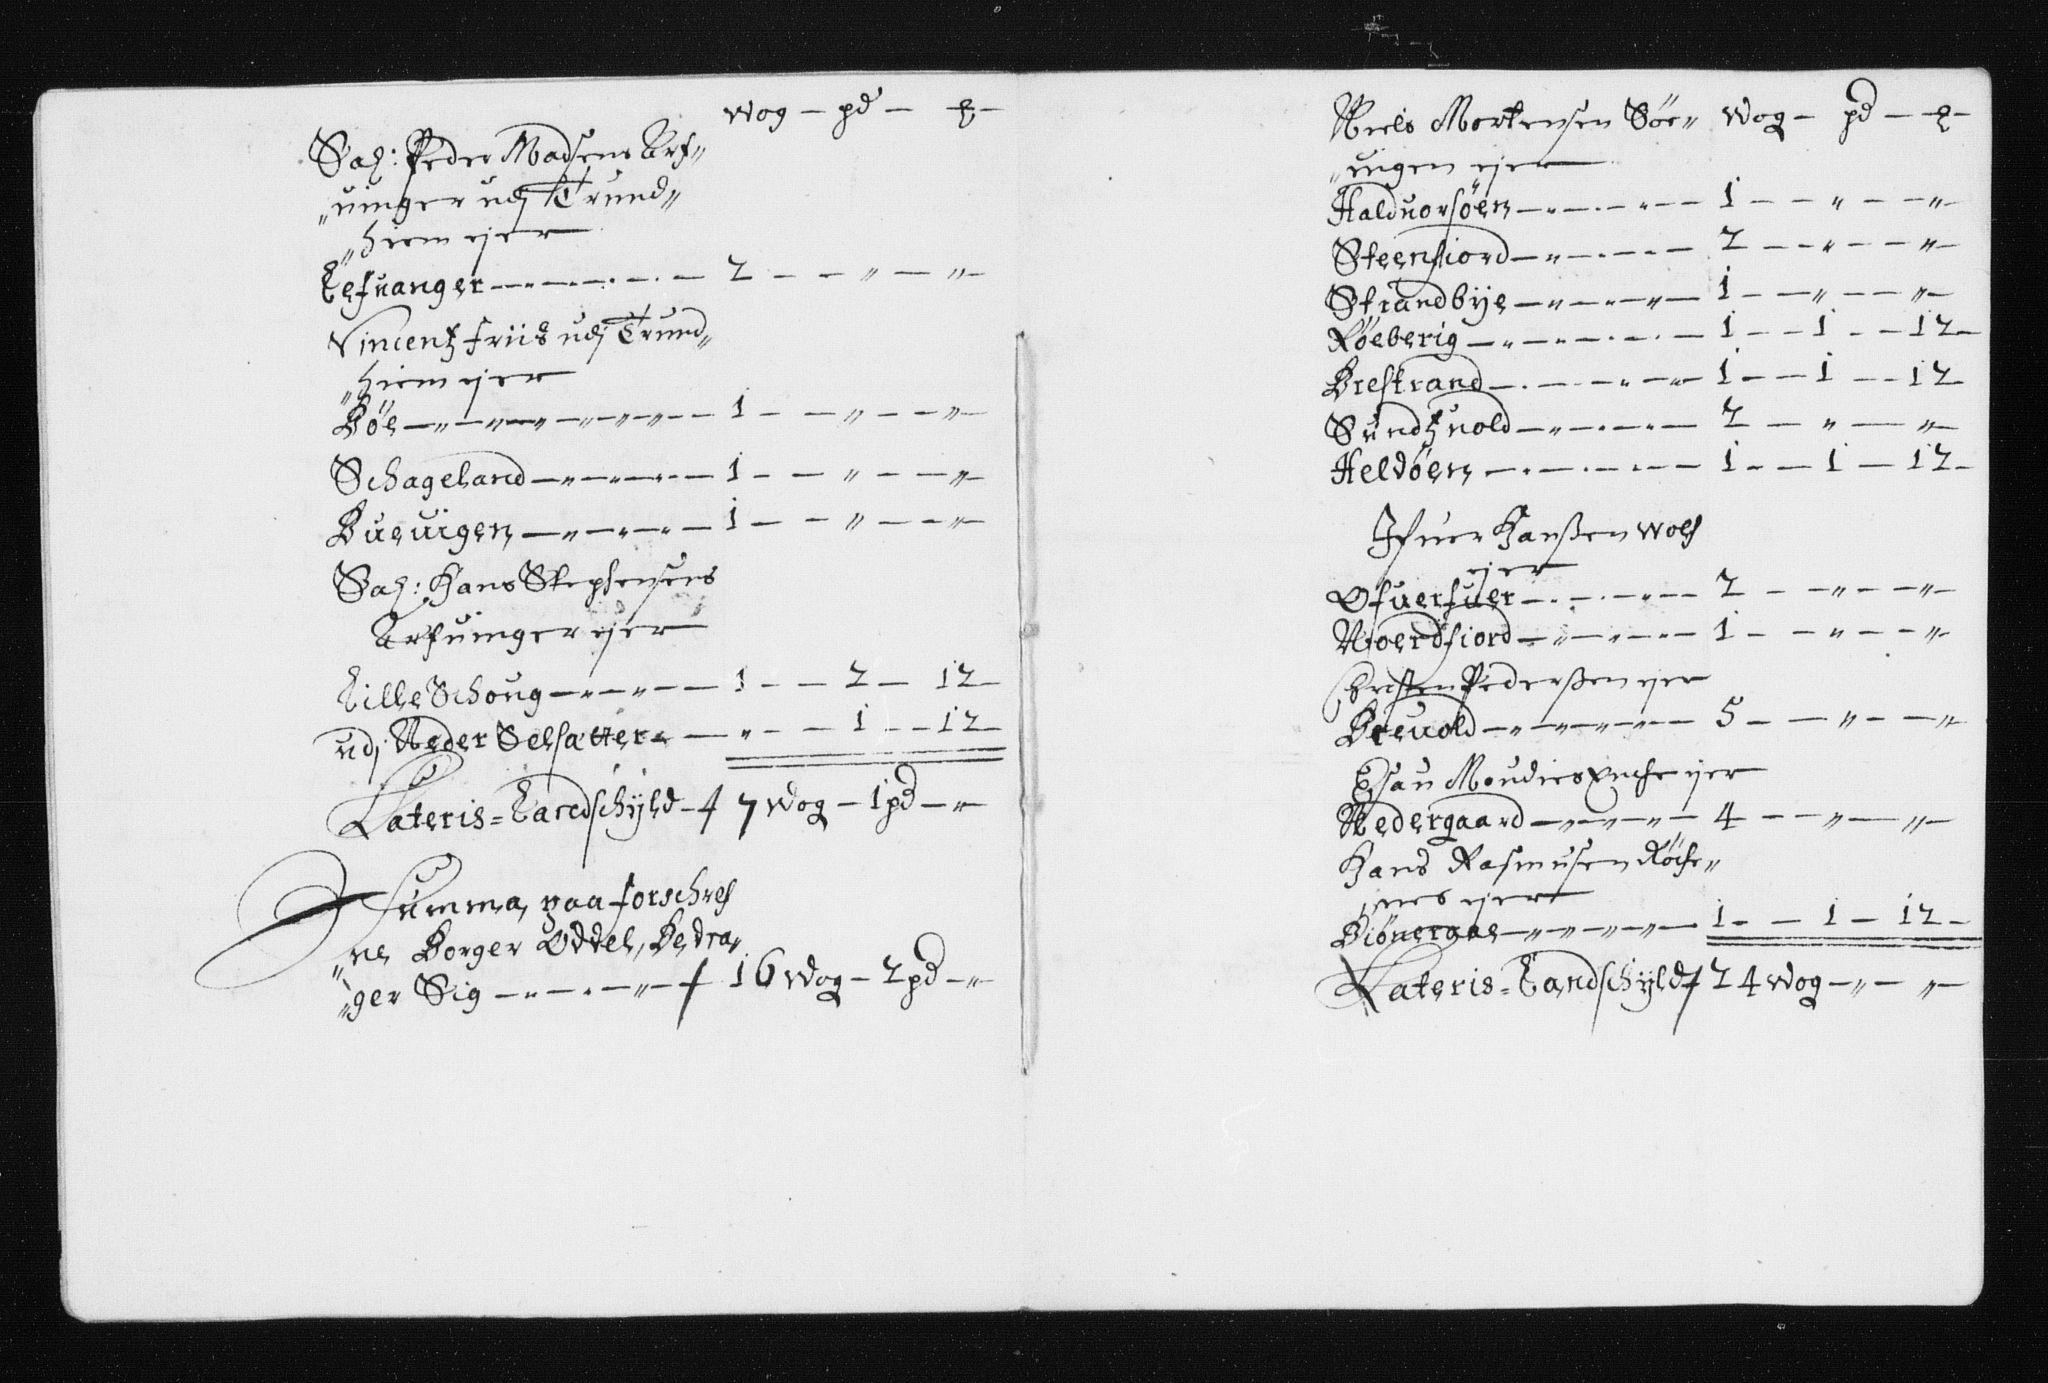 Wog — pd — ℔ —
Sal: Peder Madsens Arf„
„uinger udj Trund„
„hiem ejer
Lefuanger — 2 — „ — „
Vincentz friis udj Trund„
„hiem ejer
Böe — 1 — „ — „
Schageland — 1 — „ — „
Bueuigen — 1 — „ — „
Sal: Hans Stephensens
Arfuinger ejer
Lille Schoug — 1 — 2 — 12 —
udj Neder Selsætter — „ — 1 — 12 —
Lateris = Landschÿld — 7 Wog — 1 pd — „
Summa, paa forschref
„ne Borger Oddel, Bedra„
„ger Sig — 16 Wog — 2 pd — „
Niels Mortensen Söe„ Wog — pd — ℔ —
„ingen ejer
Halduorsöen — 1 — „ — „
Steenfiord — 2 — „ — „
Strandbÿe — 1 — „ — „
Röeberig — 1 — 1 — 12 —
Brestrand — 1 — 1 — 12
Sundtzuold — 2 — „ — „
Heldöen — 1 — 1 — 12 —
Ifuer Hanßen Wolf
ejer
Ofuerfuer — 2 — „ — „
Noerdfiord — 1 — „ — „
Christen Pederßen ejer
Breuold — 5 — „ — „
Esau ejer
Nedergaard — 4 — „ — „
Hans Rasmusen
ejer
Biönergae — 1 — 1 — 12 —
Lateris = Landschÿld 24 Wog — „ — „